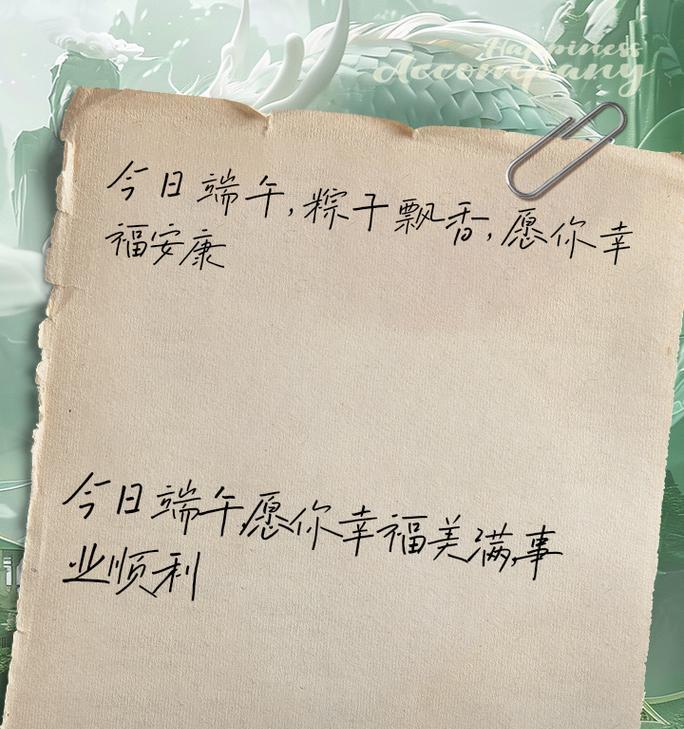 Happiness
Accompany
今日端午,粽子飘香,愿你幸
福安康
今日端午愿你幸福美满,事
业顺利